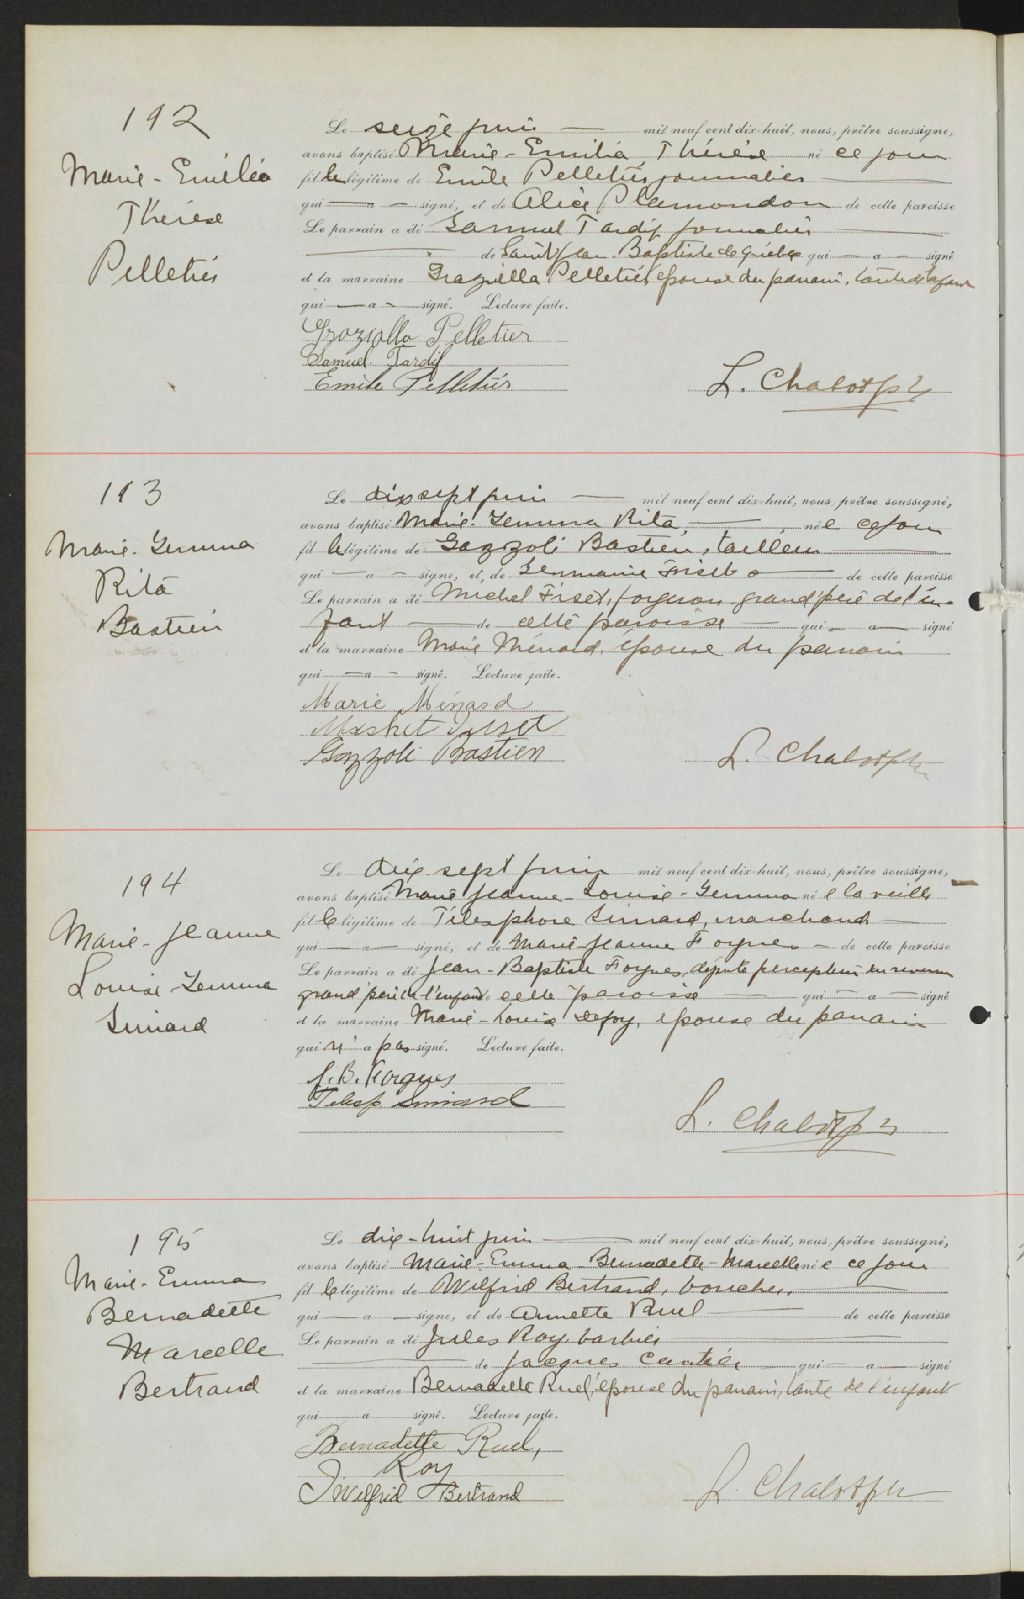 192
Marie-Emilia
Thérèse
Pelletier
Le seize juin — mil neuf cent dix-huit, nous, prêtre soussigné,
avons baptisé Marie-Emilia Thérèse né ce jour
fille légitime de Emile Pelletier, journalier —
qui — a — signé, et de Alice Plamondon de cette paroisse
Le parrain a été Samuel Tardif journalier —
de Saint Jean Baptiste de Québec qui — a — signé
et la marraine Graziella Pelletier, épouse du parrain, tante de l'enfant
qui — a — signé. Lecture faite.
Graziella Pelletier
Samuel Tardif
Emile Pelletier
L. Chabot ptr
193
Marie-Gemma
Rita
Bastien
Le dix sept juin — mil neuf cent dix-huit, nous, prêtre soussigné,
avons baptisé Marie-Gemma Rita, — née ce jour
fille légitime de Gazzoli Bastien, tailleur
qui — a — signé, et de Germaine Fiset — de cette paroisse
Le parrain a été Michel Fiset, forgeron grand'père de l'en-
fant — de cette paroisse — qui — a — signé
et la marraine Marie Ménard, épouse du parrain
qui — a — signé. Lecture faite.
Marie Ménard
Michel Fiset
Gozzoli Bastien
L. Chabot ptr
194
Marie-Jeanne
Louise-Gemma
Simard
Le dix sept juin mil neuf cent dix-huit, nous, prêtre soussigné,
avons baptisé Marie Jeanne-Louise-Gemma née la veille
fille légitime de Télesphore Simard, marchand —
qui — a — signé, et de Marie-Jeanne Forgues — de cette paroisse
Le parrain a été Jean-Baptiste Forgues, député percepteur du revenu
grand'père de l'enfant de cette paroisse — qui — a — signé
et la marraine Marie-Louise Defoy, épouse du parrain
qui n'a pas signé. Lecture faite.
J. B. Forgues
Telesp Simard
L. Chabot ptr
195
Marie-Emma
Bernadette
Marcelle
Bertrand
Le dix-huit juin — mil neuf cent dix-huit, nous, prêtre soussigné,
avons baptisé Marie-Emma-Bernadette-Marcelle née ce jour
fille légitime de Wilfrid Bertrand, boucher, —
qui — a — signé, et de Annette Ruel — de cette paroisse
Le parrain a été Jules Roy barbier
— de Jacques Cartier — qui — a — signé
et la marraine Bernadette Ruel, épouse du parrain, tante de l'enfant
qui — a — signé. Lecture faite.
Bernadette Ruel,
Roy
Wilfrid Bertrand
L. Chabot ptr